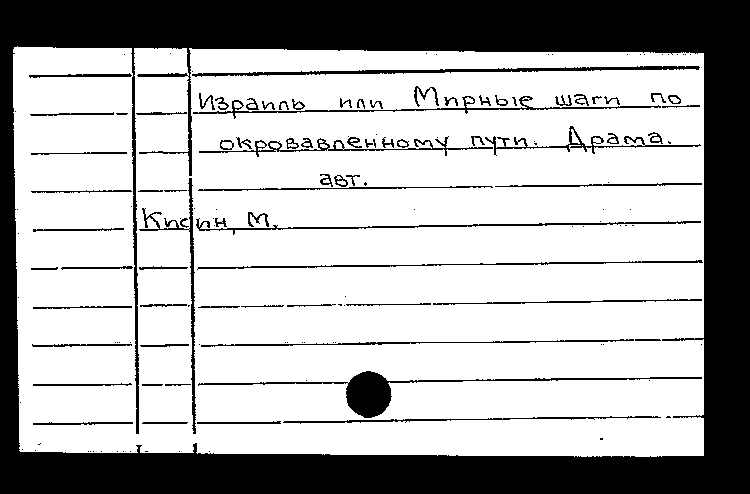 Израиль или Мирные шаги по
окровавленному пути. Драма.
авт.
Кисин, М.